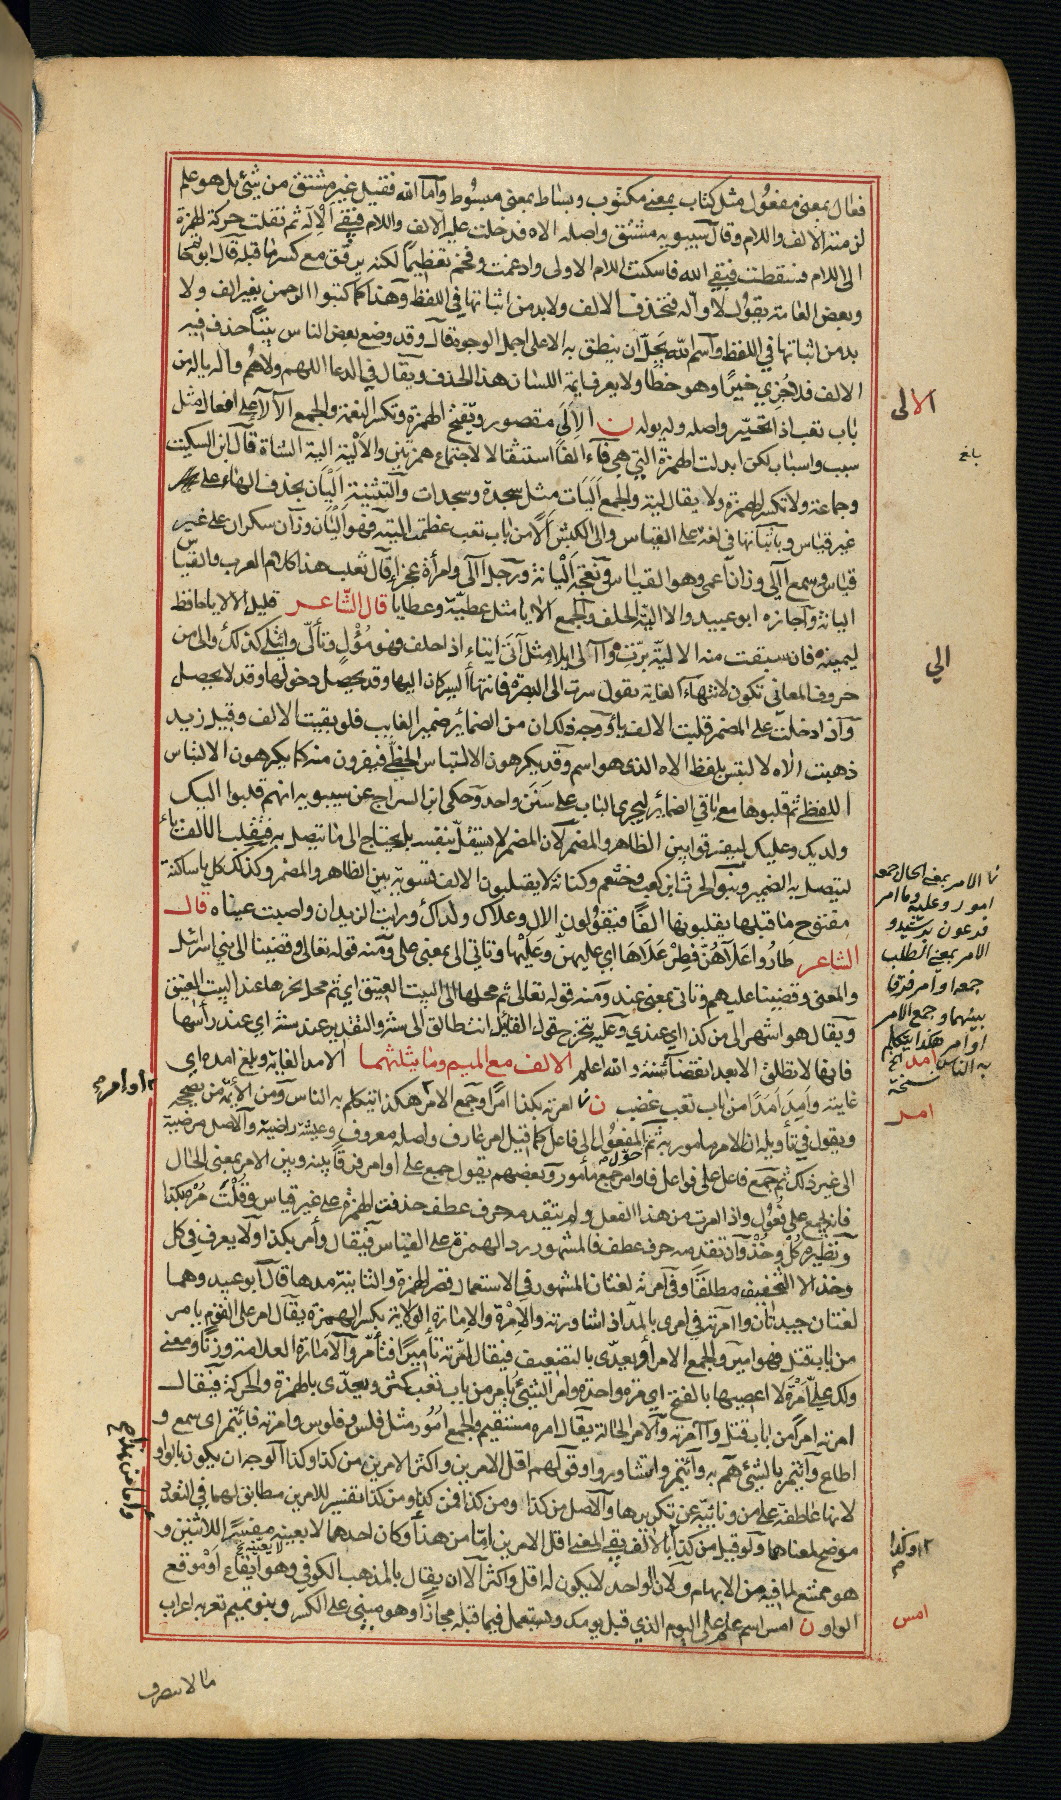 فعال بمعنى مفعول مثل كتاب بمعنى مكتوب وبساط بمعنى مبسوط وأما الله فقيل غير مشتق من شيئ بل هو علم
لزمته الالف واللام وقال سيبويه مشتق واصله الاه فدخلت عليه الالف واللام فبقي الإله ثم نقلت حركة الهمزة
الى اللام فسقطت فبقي الله فاسكنت اللام الاولى وادغمت وفخم تعظيما لكنه يرقق مع كسر ما قبله قال ابو
وبعض العامة يقول لا والله فتحذف الالف ولا بد من اثباتها في اللفظ وهذا كما كتبوا الرحمن بغير الف ولا
بد من اثباتها في اللفظ واسم الله يجل ان ينطق به الا على اجمل الوجوه قال وقد وضع بعض الناس بيتا حذف فيه
الالف فلا جزي خيرا وهو خطأ ولا يعرف ايمة اللسان هذا الحذف ويقال في الدعا اللهم ولاهم واله ياله من
باب تعب اذا تحير واصله وله يوله ن الالى مقصور وتفتح الهمزة وتكسر النعمة والجمع الآلا على افعال مثل
سبب واسباب لكن ابدلت الهمزة التي هي فآء الفا استثقالا لاجتماع همزتين والألية الية الشاة قال ابن السكيت
وجماعة ولا تكسر الهمزة ولا يقال لية والجمع أليات مثل سجدة وسجدات والتثنية أليان بحذف الهاء على
غير قياس وباثباتها في لغة على القياس والى الكبش ألا من باب تعب عظمت اليته فهو أليان وزان سكران على غير
قياس وسمع آلى وزان أعمى وهو القياس ونعجة أليانة ورجل آلى وامرأة عجزاء قال ثعلب هذا كلام العرب والقياس
اليانة واجازه ابو عبيد والالية الحلف والجمع الايا مثل عطية وعطايا قال الشاعر قليل الالايا حافظ
ليمينه فان سبقت منه الالية برت وآلى ايلا مثل آتى ايتاء اذا حلف فهو مؤل وتألى وائتلى كذلك والى من
حروف المعاني تكون لانتهاء الغاية يقول سرت الى البصرة فانتهاء السير كان اليها وقد يحصل دخولها وقد لا يحصل
واذا دخلت على المضمر قلبت الالف ياء ووجه ذلك ان من الضمائر ضمير الغايب فلو بقيت الالف وقيل زيد
ذهبت الاه لالتبس بلفظ الاه الذي هو اسم وقد يكرهون الالتباس الخطي فيفرون منه كما يكرهون الالتباس
اللفظي ثم قلبوها مع باقي الضمائر ليجري الباب على سنن واحد وحكى ابن السراج عن سيبويه انهم قلبوا اليك
ولديك وعليك ليفرقوا بين الظاهر والمضمر لان المضمر لا يستقل بنفسه بل يحتاج الى ما يتصل به فتقلب الالف ياء
ليتصل به الضمير وبنو الحرث ابن كعب وخثعم وكنانة لا يقلبون الالف تسوية بين الظاهر والمضمر وكذلك كل يا ساكنة
مفتوح ما قبلها يقلبونها الفا فيقولون الاك وعلاك ولداك ورايت الزيدان واصبت عيناه قال
الشاعر طاروا علاهن فطر علاها اي عليهن وعليها وتاتي الى بمعنى على ومنه قوله تعالى وقضينا الى بني اسرائيل
والمعنى وقضينا عليهم وتاتي بمعنى عند ومنه قوله تعالى ثم محلها الى البيت العتيق اي ثم محل نحرها عند البيت العتيق
ويقال هو اشهى الي من كذا اي عندي وعليه يتخرج قول القائل انت طالق الى سنة والتقدير عند سنة اي عند رأسها
فانها لا تطلق الا بعد انقضائ سنة والله اعلم الالف مع الميم وما يثلثهما الامد الغاية وبلغ امده اي
غايته وأمد أمدا من باب تعب غضب ن امرته بكذا امرا وجمع الامر هكذا يتكلم به الناس ومن الأئمة من يصححه
ويقول في تأويله ان الامر مامور به ثم حول المفعول الى فاعل كما قيل امر عارف واصله معروف وعيشة راضية والاصل مرضية
الى غير ذلك ثم جمع فاعل على فواعل فاوامر جمع مأمور وبعضهم يقول جمع على أوامر فرقا بينه وبين الامر بمعنى الحال
فانه يجمع على فعول واذا امرت من هذا الفعل ولم يتقدمه حرف عطف حذفت الهمزة على غير قياس وقلت مره بكذا
ونظيره كل وخذ وان تقدمه حرف عطف فالمشهور رد الهمزة على القياس فيقال وأمر بكذا ولا يعرف في كل
وخذ الا التخفيف مطلقا وفي امرته لغتان المشهور في الاستعمال قصر الهمزة والثانية مدها قال ابو عبيد وهما
لغتان جيدتان وامرته في امري بالمد اذا شاورته والإمرة والإمارة الولاية بكسر الهمزة يقال امر على القوم يامر
من باب قتل فهو امير والجمع الامرا ويعدى بالتضعيف فيقال امرته تأميرا فتأمر والأمارة العلامة وزنا ومعنى
ولك علي أمرة لا اعصيها بالفتح اي مرة واحدة وامر الشيئ يأمر من باب تعب كثر ويعدى بالهمزة والحركة فيقال
امرته امرا من باب قتل وآمرته والامر الحالة يقال امره مستقيم والجمع امور مثل فلس وفلوس وامرته فائتمر اي سمع و
اطاع وائتمر بالشيئ هم به وائتمروا تشاوروا وقولهم اقل الامرين واكثر الامرين من كذا وكذا الوجه ان يكون بالواو
لانها عاطفة على من ونائبة عن تكريرها والاصل من كذا ومن كذا فمن كذا ومن كذا تفسير للامرين مطابق لهما في التعدد
موضح لمعناهما ولو قيل من كذا بالالف بقي المعنى اقل الامرين اما من هذا وكان احدهما لا بعينه مفسرا للاثنين و
هو ممتنع لما فيه من الابهام ولان الواحد لا يكون له اقل واكثر الا ان يقال بالمذهب الكوفي وهو ايقاع أو موقع
الواو ن امس اسم علم على اليوم الذي قبل يومك ويستعمل فيما قبله مجازا وهو مبني على الكسر وبنو تميم تعربه اعراب
ما لا ينصرف
الالى
بلغ
الي
الامر بمعنى الحال جمعه
امور وعليه وما امر
فرعون برشيد و
الامر بمعنى الطلب
جمعه اوامر فرقا
بينهما وجمع الامر
اوامر هكذا يتكلم
به الناس
نسخة
امر
اوامر
اوكذا
امس